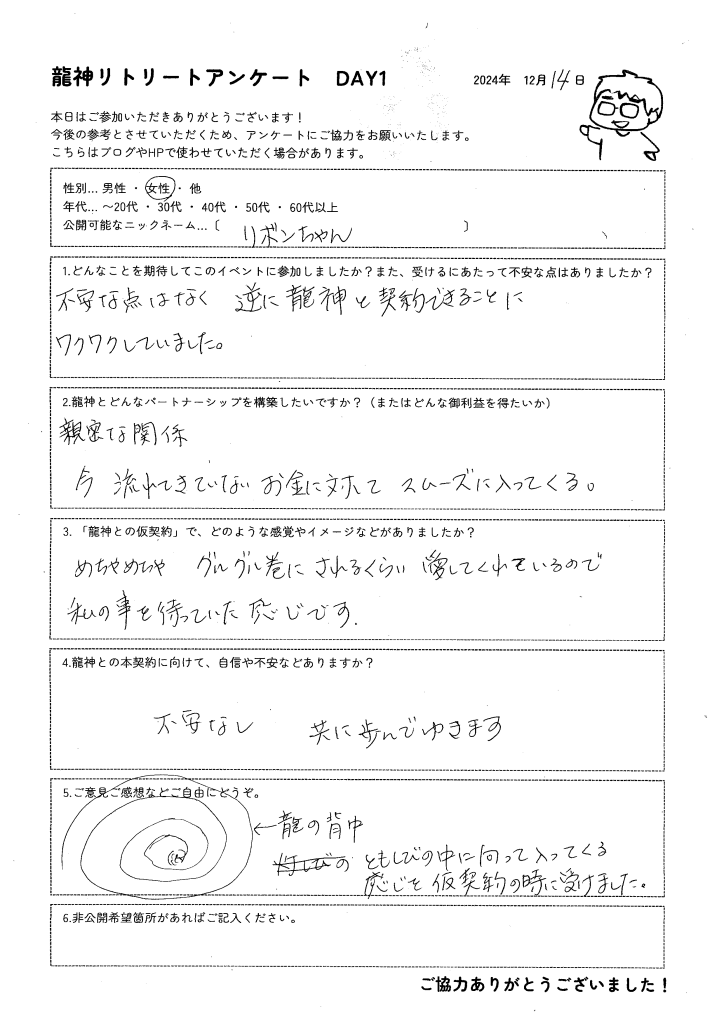 龍神リトリートアンケート　DAY1
2024年　12月14日
本日はご参加いただきありがとうございます！
今後の参考とさせていただくため、アンケートにご協力をお願いいたします。
こちらはブログやHPで使わせていただく場合があります。
性別… 男性 ・ 女性 ・ 他
年代… ～20代 ・ 30代 ・ 40代 ・ 50代 ・ 60代以上
公開可能なニックネーム…〔　リボンちゃん　〕
1.どんなことを期待してこのイベントに参加しましたか？また、受けるにあたって不安な点はありましたか？
不安な点はなく　逆に龍神と契約できることに
ワクワクしていました。
2.龍神とどんなパートナーシップを構築したいですか？（またはどんな御利益を得たいか）
親密な関係
今　流れてきていない　お金に対して　スムーズに入ってくる。
3. 「龍神との仮契約」で、どのような感覚やイメージなどがありましたか？
めちゃめちゃ　グルグル巻に　されるくらい　愛してくれているので
私の事を待っていた　感じです.
4.龍神との本契約に向けて、自信や不安などありますか？
不安なし　共に歩んでゆきます
5.ご意見ご感想などご自由にどうぞ。
←龍の背中
灯しびの　ともしびの中に向って入ってくる
感じを　仮契約の時に受けました。
6.非公開希望箇所があればご記入ください。
ご協力ありがとうございました！